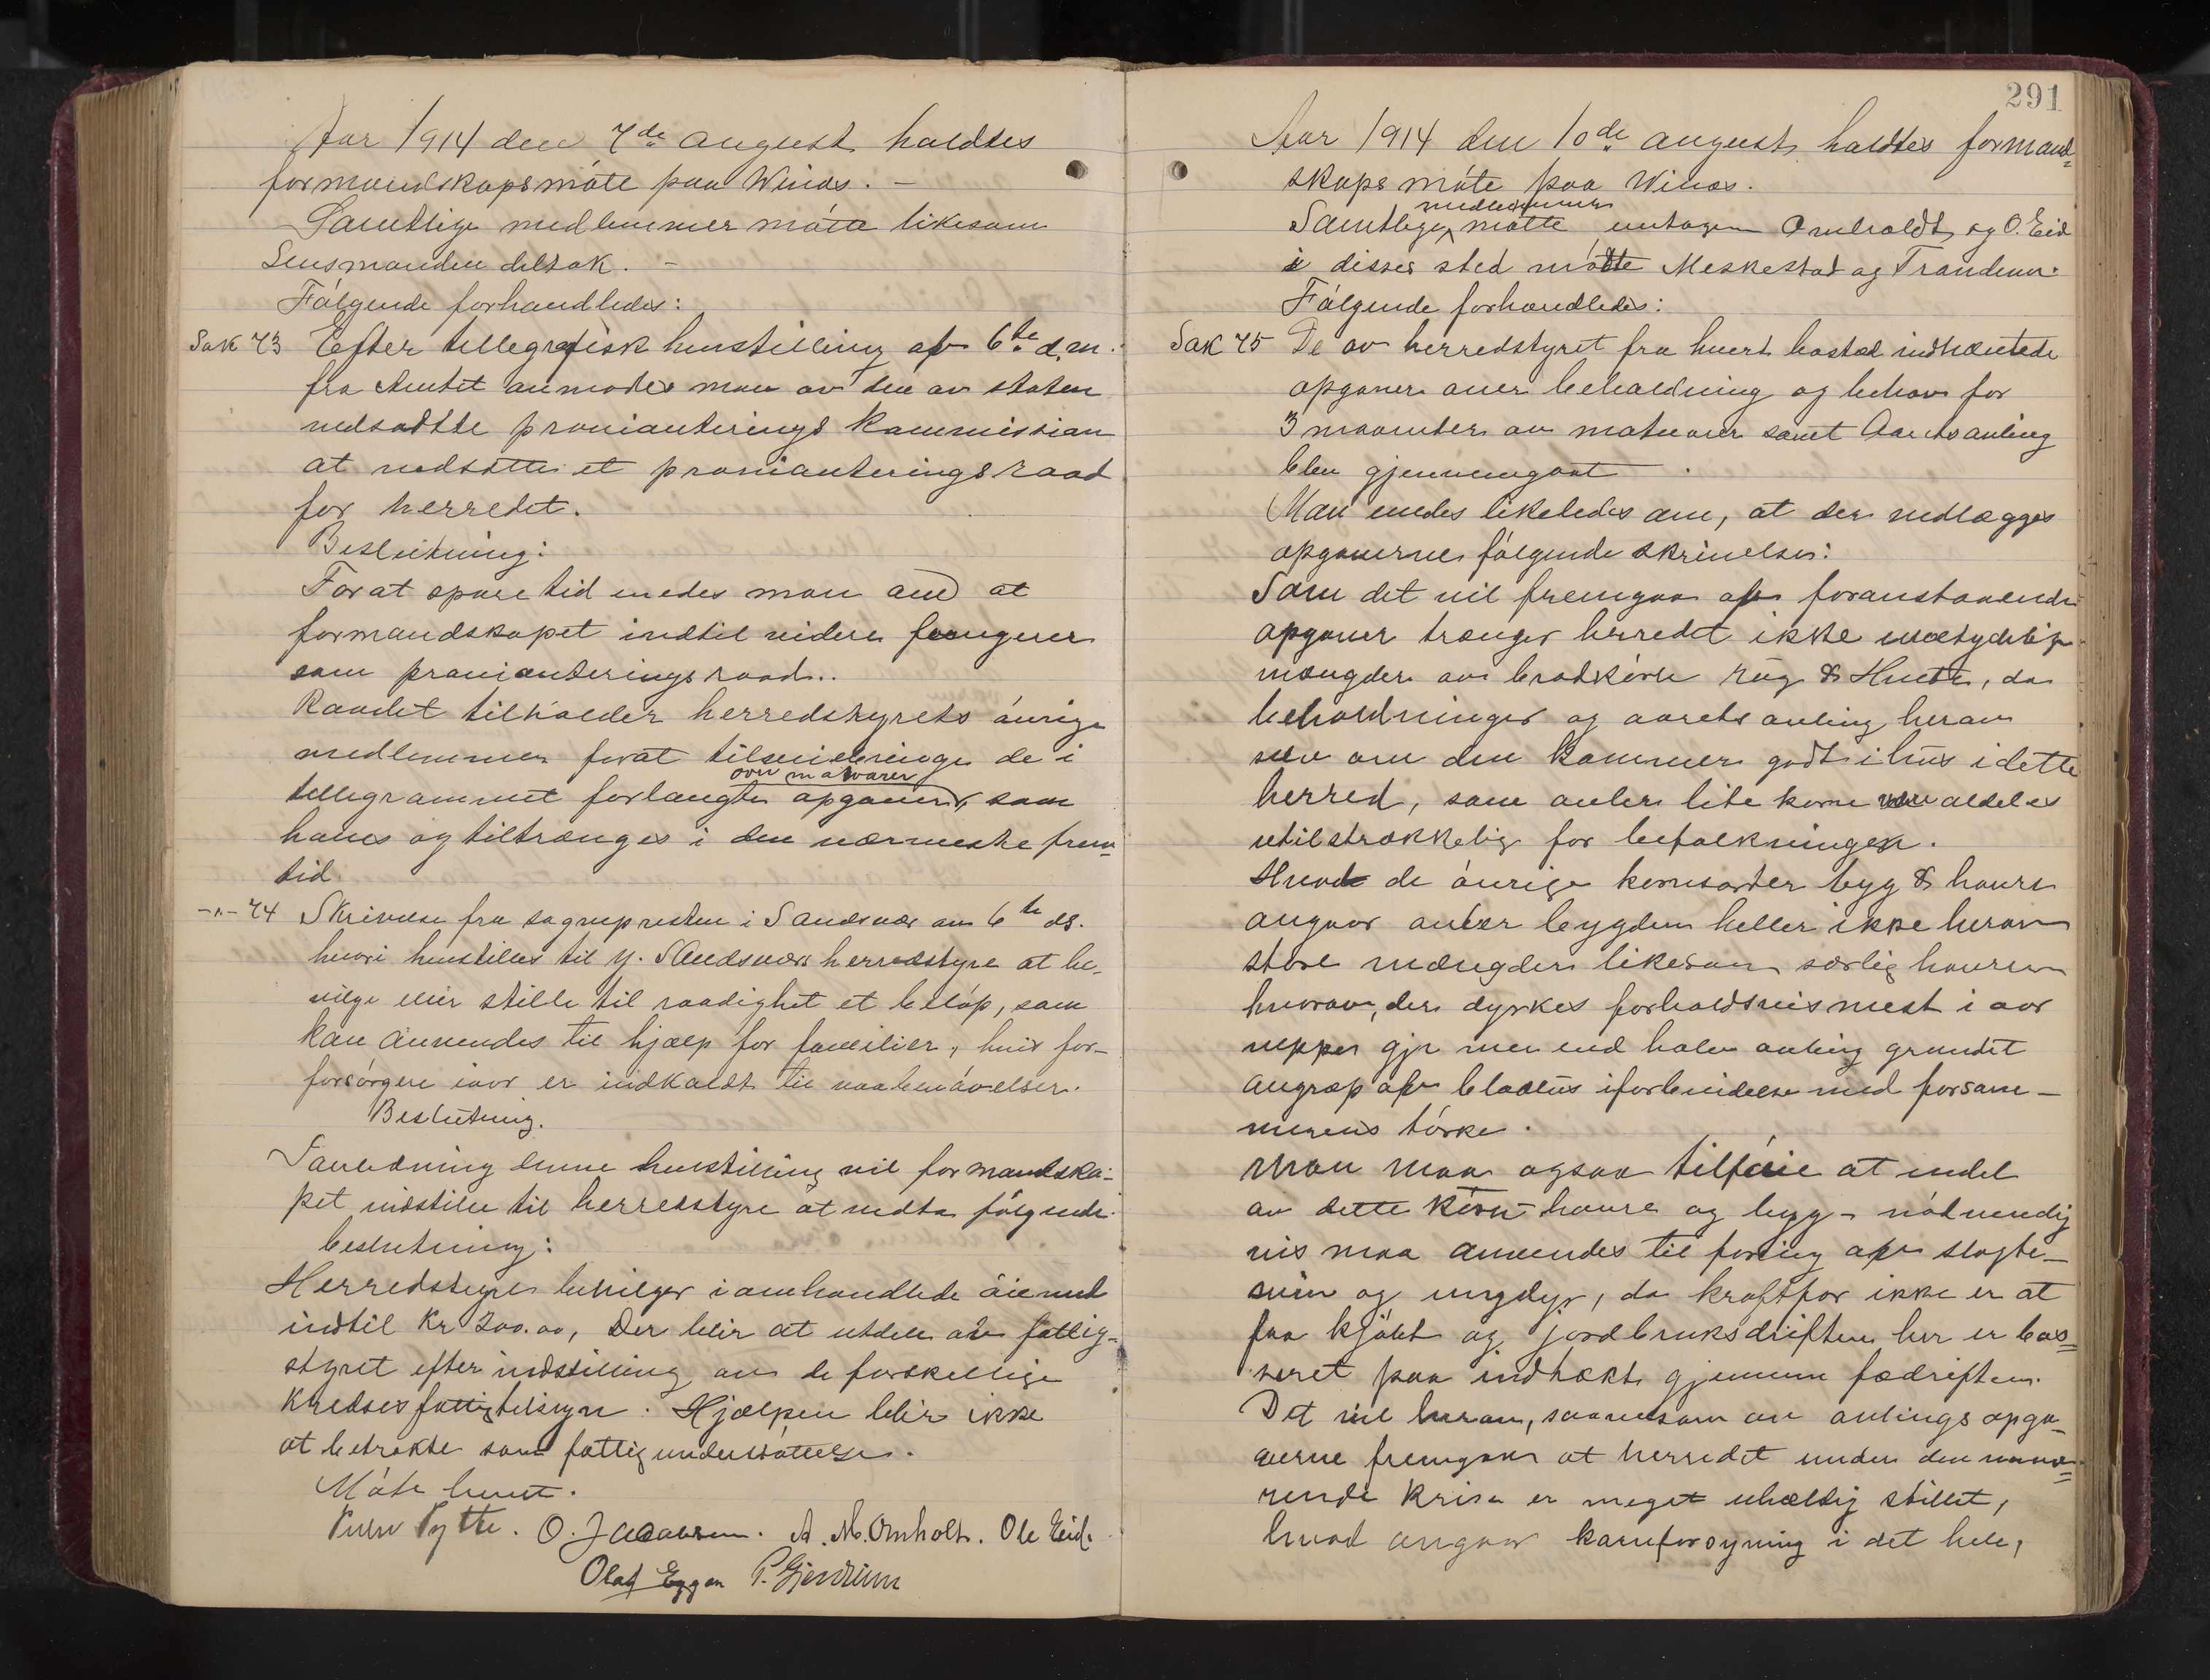 Aar 1914 den 7de august holdtes
formandskapsmøte paa Winæs. –
Samtlige medlemmer møtte likesom
Lensmanden deltok. –
Følgende forhandledes:
Sak 73 Efter tellegrafisk henstilling af 6te d.m.
fra Amtet anmodes man av den av staten
nedsatte provianterings kommission
at nedsætte et provianteringsraad
for herredet.
Beslutning:
For at spare tid enedes man om at
formandskapet indtil videre fungerer
som provianteringsraad.
Raadet tilholder herredstyrets øvrige
medlemmer forat tilveiebringe de i
over matvarer
tellegrammet forlangte opgaver, som
haves og tiltrænges i den nærmeste frem=
tid.
–"– 74 Skrivelse fra sognepresten i Sandsvær av 6te ds.
hvori henstilles til Y. Sandsværs herredstyre at be-
vilge eller stille til raadighet et beløp, som
kan anvendes til hjælp for familier, hvis for-
forsørgere iaar er indkaldt til vaabenøvelser.
Beslutning.
I anledning denne henstilling vil formandska-
pet indstille til herredstyre at vedta følgende
beslutning:
Herredstyre bevilger i omhandlede øiemed
indtil Kr 200.00, Der blir at utdele av fattig-
styret efter indstilling av de forskellige
Kredses fattigtilsyn. Hjælpen blir ikke
at betrakte som fattigunderstøttelse.
Møte hevet.
O. Jacobsen. A. M. Omholt. Ole Eid.
Olaf Eggen P. Gjendrem
291
Aar 1914 den 10de august holdtes formand=
skaps møte paa Winæs.
medlemmer
Samtlige møtte untagen Omholdt og O. Eid
i disses sted møtte Meskestad og Trandem.
Følgende forhandledes:
Sak 75 De av herredstyret fra hvert bosted indhentede
opgaver over beholdning og behov for
3 maaneder av matvarer samt Aarets avling
blev gjennemgaat.
Man enedes likeledes om, at der vedlægges
opgaverne følgende skrivelse:
Som det vil fremgaa af foranstaaende
opgaver trænger herredet ikke ubetydelig
mængder av brødkorn rug & Hvete, da
beholdninger og aarets avling herav
selv om den kommer godt i hus i dette
herred, som avler lite korn aldeles
utilstrækkelig for befolkningen.
Hvad de øvrige kornsorter byg & havre
angaar avler bygden heller ikke herav
store mængder likesom særlig havren
hvorav, der dyrkes forholdsvis mest i aar
neppe gir mer end halv avling grundet
angrep af bladlus iforbindelse med forsom-
merens tørke.
Man maa ogsaa tilføie at endel
av dette korn – havre og byg – nødvendig
vis maa anvendes til foring af slagte-
svin og ungdyr, da kraftfor ikke er at
faa kjøbt og jordbruksdriften her er bas=
seret paa indtækt gjennem fædriften.
Det vil herav, saavelsom av avlings opga-
verne fremgaar at herredet under den nuvæ=
rende krise er meget uheldig stillet,
hvad angaar kornforsyning i det hele,